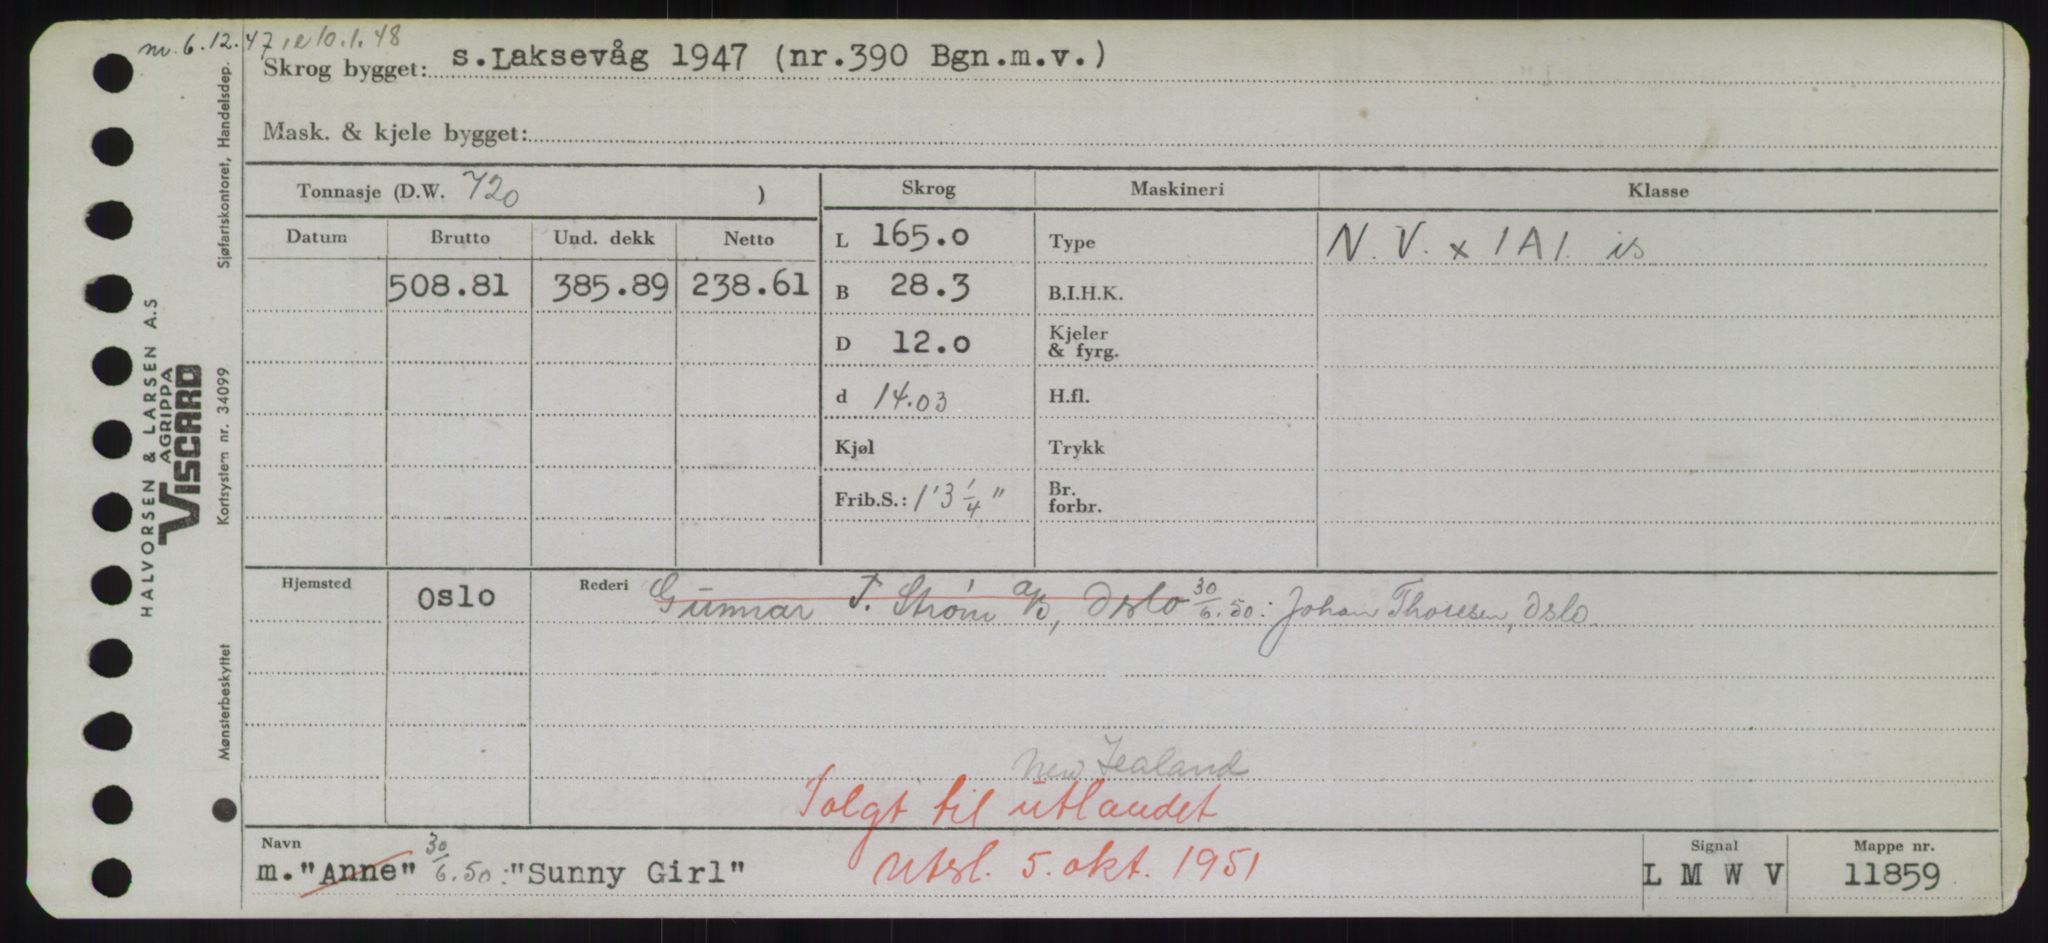 m. 6.12.47, e 10.1.48
Skrog bygget: s.Laksevåg 1947 (nr.390 Bgn.m.v.)
Mask. & kjele bygget:
Tonnasje (D.W. 720 )
Skrog Maskineri Klasse
Datum Brutto Und. dekk Netto
508.81 385.89 238.61
L 165.0 Type N.V. x 1A1. is
B 28.3 B.I.H.K.
D 12.0 Kjeler & fyrg.
d 14.03 H.fl.
Kjøl Trykk
Frib.S.: 1'3 1/4" Br. forbr.
Hjemsted Oslo Rederi Gunnar T. Strøm a/s, Oslo 30/6.50: Johan Thoresen, Oslo.
New Zealand
Solgt til utlandet
Utsl. 5. okt. 1951
Navn
m."Anne" 30/6.50:"Sunny Girl"
Signal
L M W V
Mappe nr.
11859
HALVORSEN & LARSEN A.S
AGRIPPA
VISCARD
Mønsterbeskyttet Kortsystem nr. 34099 Sjøfartskontoret, Handelsdep.